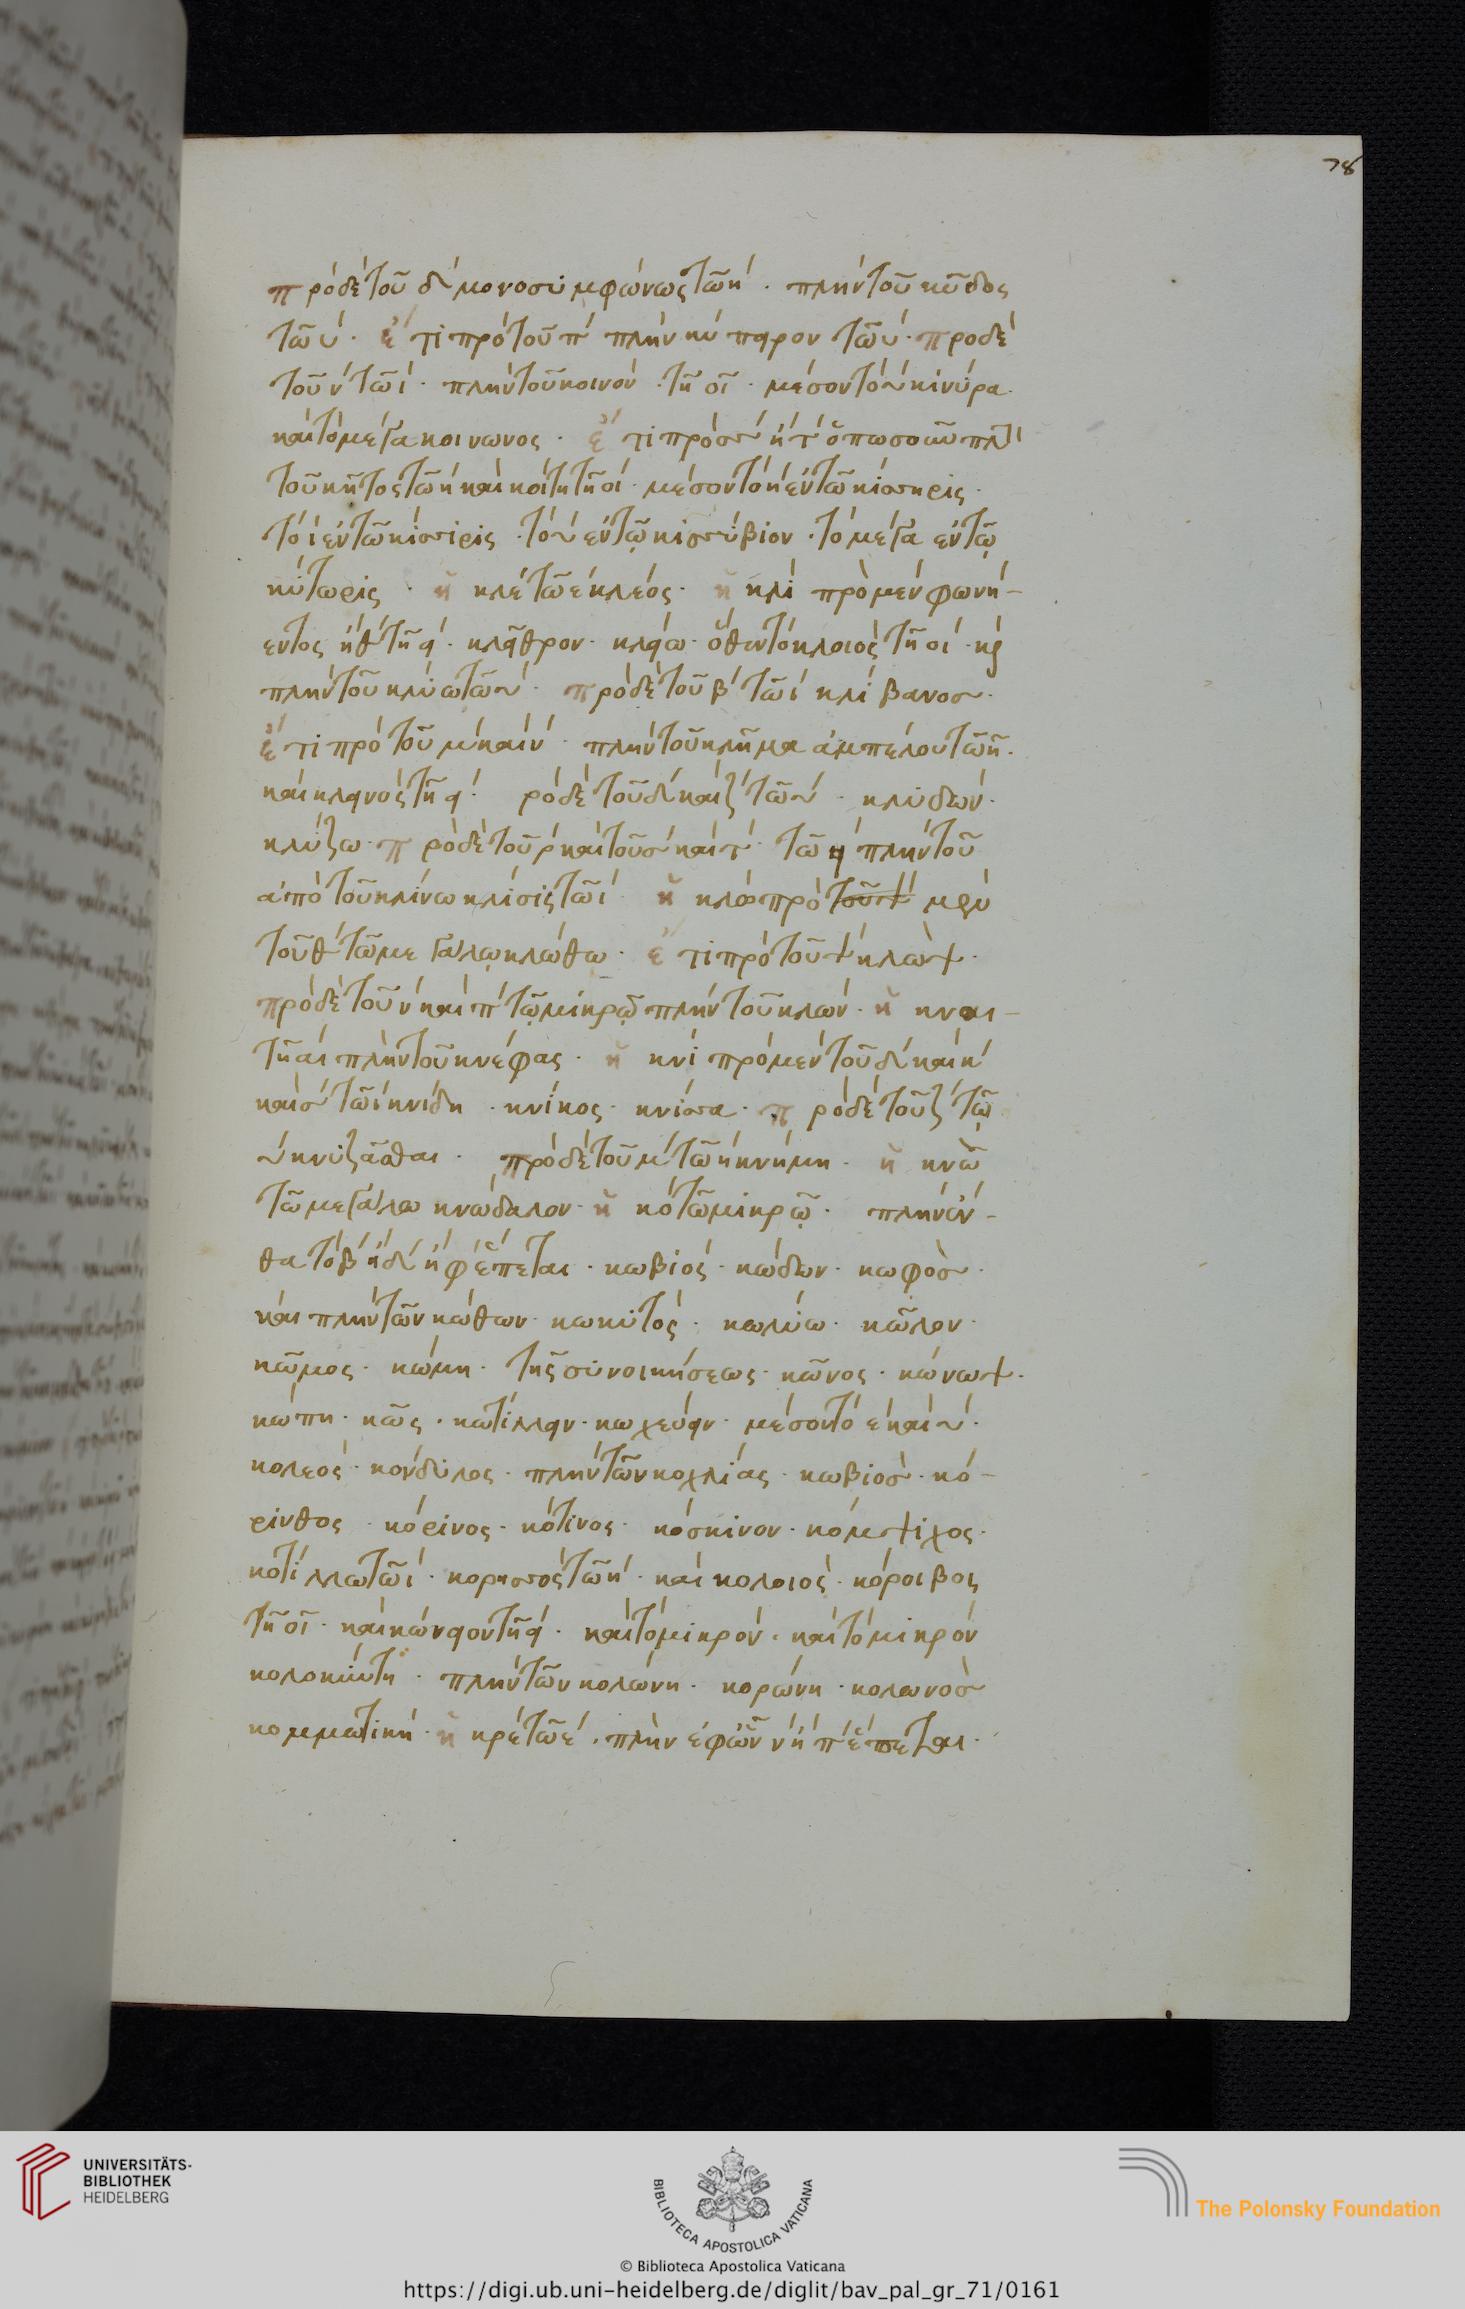 78
πρὸ δὲ τοῦ δ' μονοσυμφώνως τῶ η'. πλὴν τοῦ κῦδος
τῶ υ'. ἔτι πρὸ τοῦ π' πλὴν κύπαρον τῶ υ'. προ δὲ
τοῦ ν' τῶ ι'. πλὴν τοῦ κοινόν τῆ οῖ. μέσον τὸ υ κινύρα.
καὶ τὸ μέγα κοινωνος. ἔτι πρὸ σ' ἢ τ' ὁπωσοῦν πλὴν
τοῦ κῆτος τῶ η' καὶ κοίτη τῆ οί. μέσον τὸ η ἐν τῶ κίσηρις.
τὸ ι ἐν τῶ κίσιρις. τὸ υ ἐν τῶ κισσύβιον. τὸ μέγα ἐν τῶ
κύτωρις. ἢ κλέ τῶ ε κλέος. ἢ κλι πρὸ μὲν φωνή-
εντος ἢ θ' τῆ ᾳ. κλᾷθρον. κλᾴω. ὅθεν τὸ κλοιὸς τῆ οι.
πλὴν τοῦ κλύω τῶ υ'. πρὸ δὲ τοῦ β' τῶ ι κλίβανος.
ἔτι πρὸ τοῦ μ' καὶ ν'. πλὴν τοῦ κλῆμα ἀμπέλου τῶ η.
καὶ κλᾳνὸς τῆ ᾳ'. ρὸ δὲ τοῦ δ' καὶ ζ' τῶ υ'. κλύδων.
κλύζω. πρὸ δὲ τοῦ ρ' καὶ τοῦ σ' καὶ τ' τῶ η πλὴν τοῦ
ἀπὸ τοῦ κλίνω κλίσις τῶ ι. ἢ κλο πρὸ
τοῦ θ' τῶ μεγάλω κλώθω. ἔτι πρὸ τοῦ ψ' κλὼψ.
πρὸ δὲ τοῦ ν' καὶ π' τῶ μικρῶ πλὴν τοῦ κλων. ἢ κναι-
τῆ αι πλὴν τοῦ κνέφας. ἢ κνὶ πρὸ μὲν τοῦ δ' καὶ κ'
καὶ σ' τῶ ι κνίδη. κνίκος. κνίσα. πρὸ δὲ τοῦ ζ' τῶ
υ κνυζᾶσθαι. πρὸ δὲ τοῦ μ' τῶ η κνήμη. ἢ κνῶ
τῶ μεγάλω κνώδαλον. ἢ κό τῶ μικρῶ. πλὴν ἔν-
θα τὸ β' ἢ δ' ἢ φ' ἕπεται. κωβιός. κώδων. κωφὸς.
καὶ πλὴν τῶν κώθων. κωκυτός. κωλύω. κῶλον.
κῶμος. κώμη. τῆς συνοικήσεως. κῶνος. κώνωψ.
κώπη. κῶς. κωτίλλην. κωχεύην. μέσον τὸ ε καὶ υ.
κολεός. κονδύλος. πλὴν τῶν κοχλίας. κωβιοσ. κό-
ρινθος. κόρινος. κότινος. κόσκινον. κόμψιχος.
κοτίλλω τῶ ι. κορησσός τῶ η'. καὶ κολοιὸς. κόροιβος
τῆ οῖ. καὶ κώνᾳον τῆ ᾳ'. καὶ τὸ μικρόν. καὶ τὸ μικρόν
κολοκύντη. πλὴν τῶν κολώνη. κορώνη. κολωνὸσ
κομμωτικὴ. ἢ κρέ τῶ ε. πλὴν ἐφ' ὧν ν' ἢ π' ἕπεται.
UNIVERSITÄTS-
BIBLIOTHEK
HEIDELBERG
BIBLIOTECA APOSTOLICA VATICANA
The Polonsky Foundation
© Biblioteca Apostolica Vaticana
https://digi.ub.uni-heidelberg.de/diglit/bav_pal_gr_71/0161